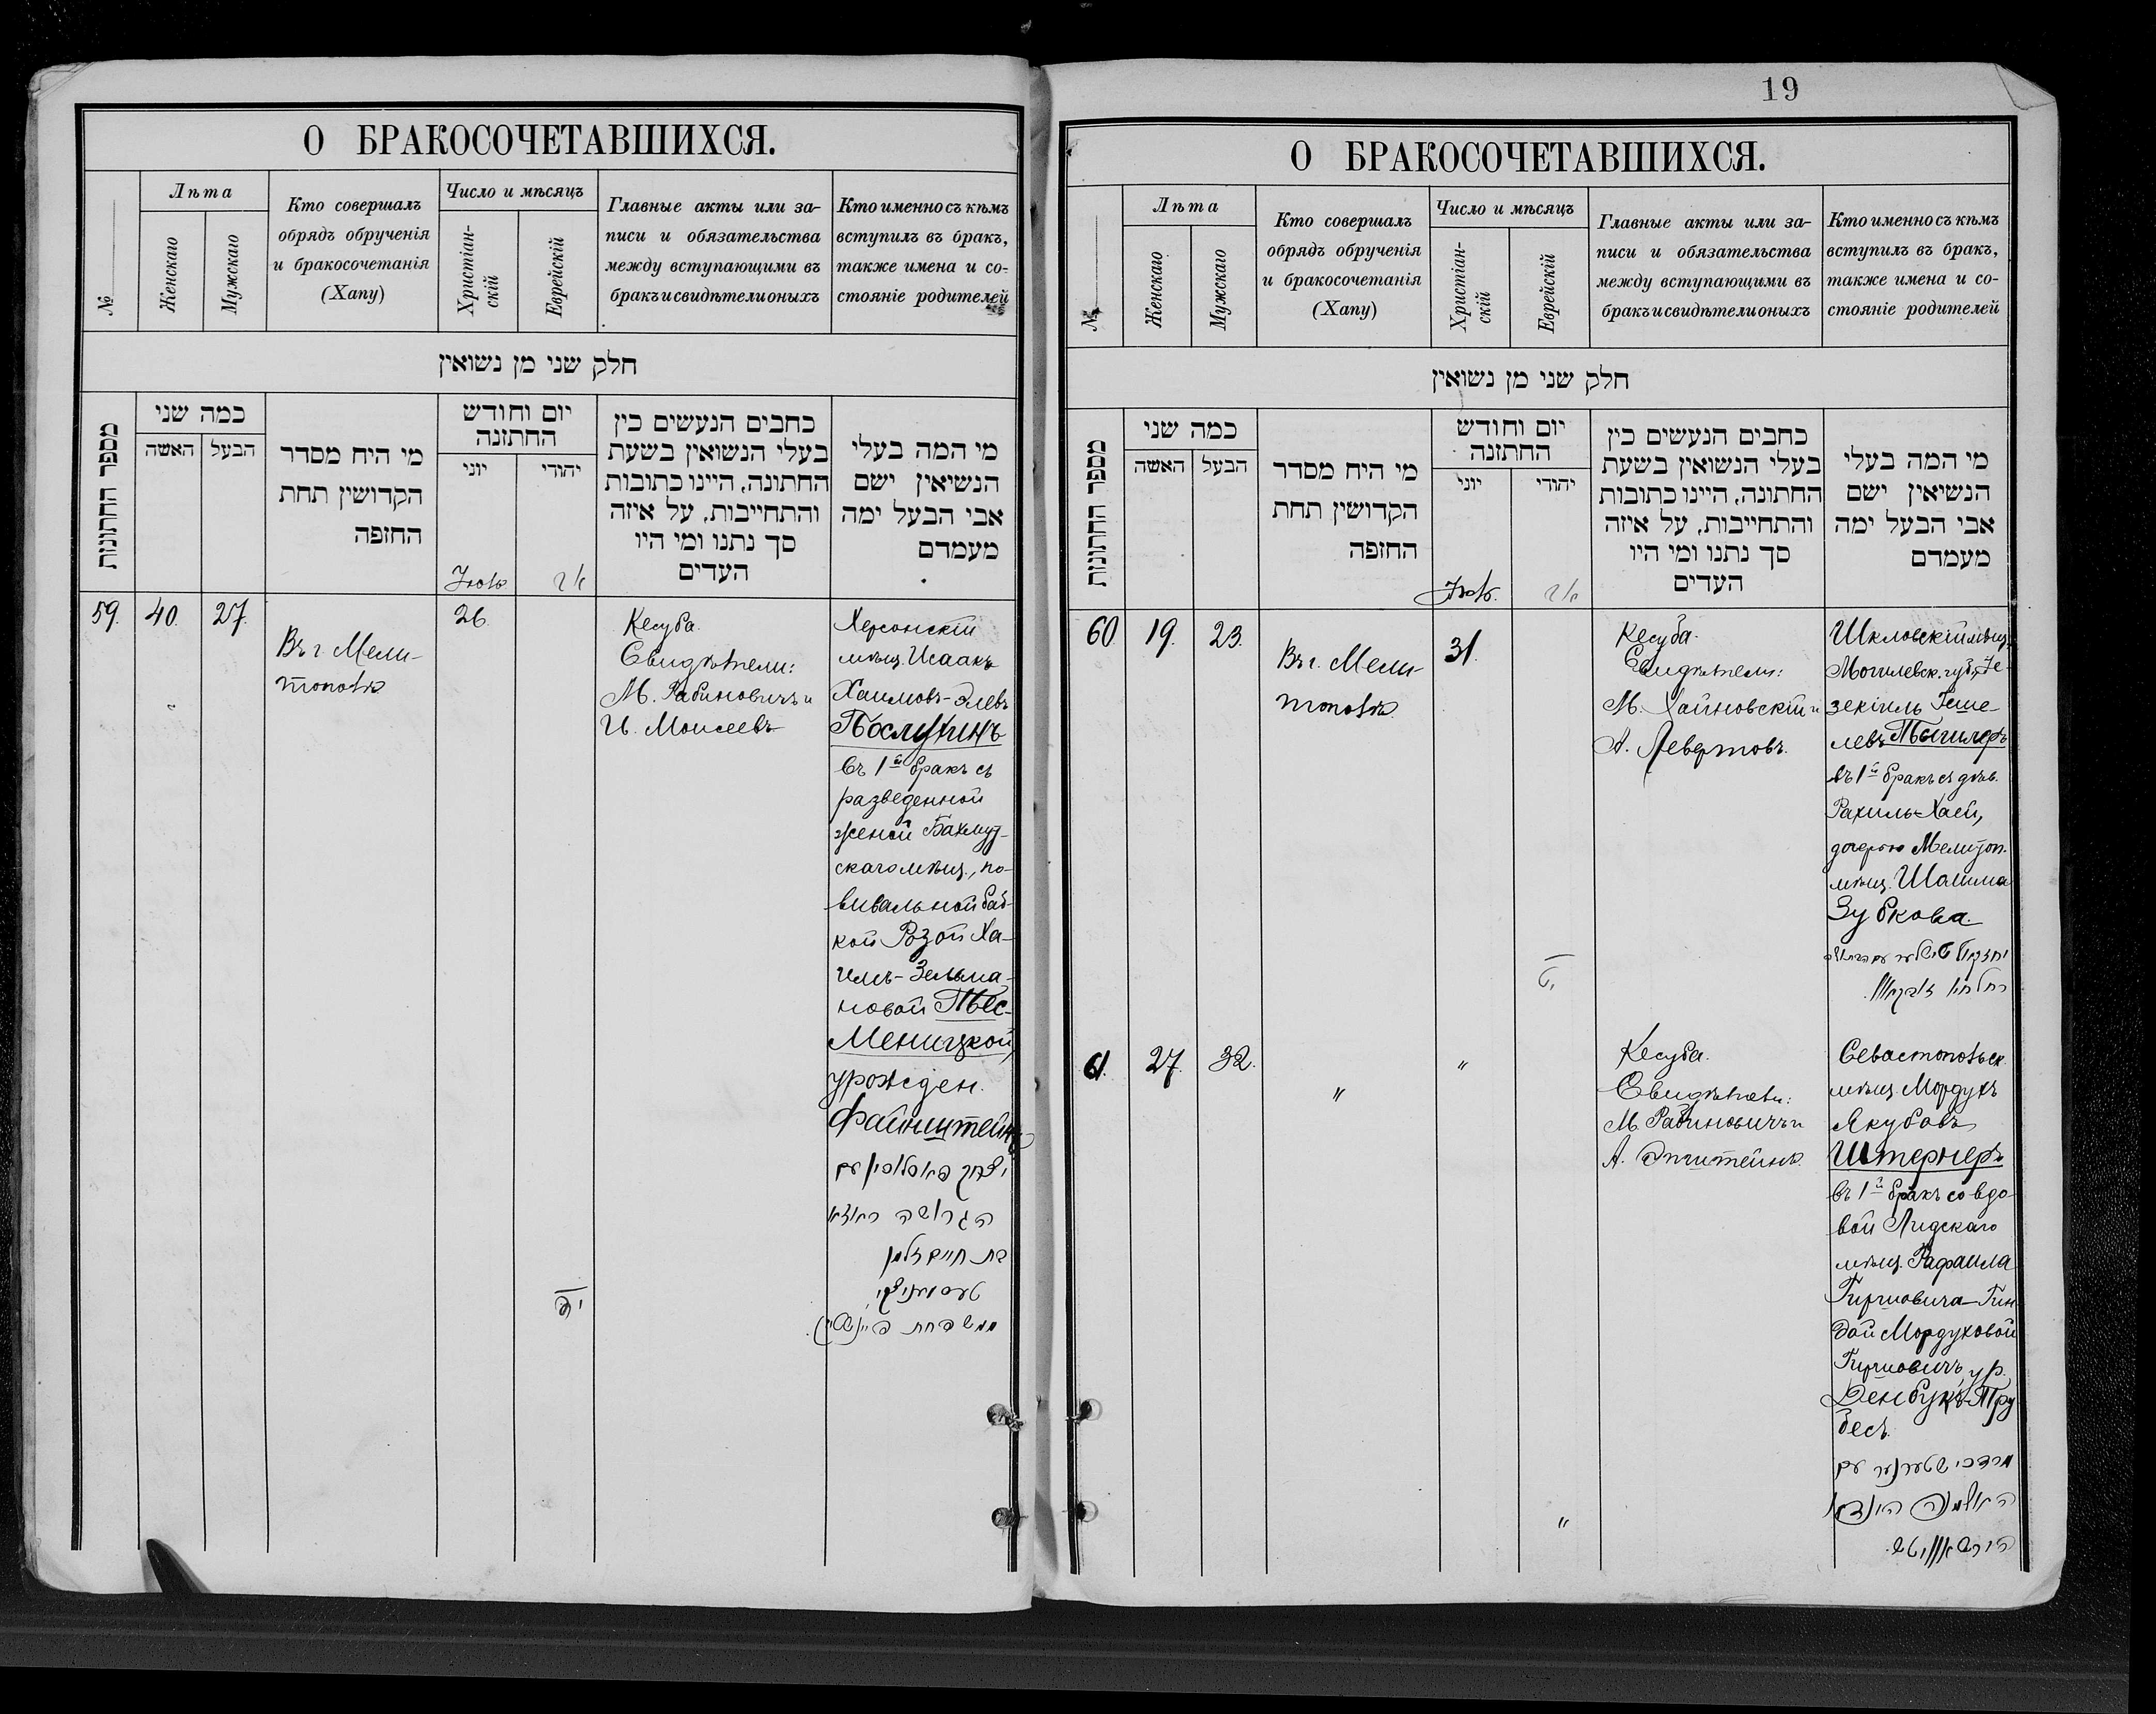 О БРАКОСОЧЕТАВШИХСЯ.
№
Лѣта
Женскаго
Мужскаго
Кто совершалъ
обрядъ обрученія
и бракосочетанія
(Хапу)
Число и мѣсяцъ
Христіан-
скій
Еврейскій
Главные акты или за-
писи и обязательства
между вступающими въ
бракъ и свидѣтели оныхъ
Кто именно съ кѣмъ
вступилъ въ бракъ,
также имена и со-
стояніе родителей
חלק שני מן נשואין
מספר החתונות
כמה שני
האשה
הבעל
מי היח מסדר
הקדושין תחת
החופה
יום וחודש
החתונה
יוני
יהודי
כחבים הנעשים כין
בעלי הנשואין בשעת
החתונה, היינו כתובות
והתחייבות, על איזה
סך נתנו ומי היו
העדים
מי המה בעלי
הנשיאין ישם
אבי הבעל ימה
מעמדם
Іюль
59.
40.
27.
Въ г. Мели-
тополѣ
26.
Кесуба.
Свидѣтели:
М. Рабиновичъ и
И. Моисеевъ
Херсонскій
мѣщ. Исаакъ
Хаимовъ-Элевъ
въ 1й бракъ съ
разведенной
женой Бахмут-
скаго мѣщ., по-
вивальной баб-
кой Розой Ха-
имъ-Зельма-
новой Тыс-
Меницкой,
урожден.
Файнштейнъ
יצחק
עם
הגרושה ראזא
בת חיים זלמן
טעסמעניצקי
ממשפחת פיינשטיין.
19
О БРАКОСОЧЕТАВШИХСЯ.
№
Лѣта
Женскаго
Мужскаго
Кто совершалъ
обрядъ обрученія
и бракосочетанія
(Хапу)
Число и мѣсяцъ
Христіан-
скій
Еврейскій
Главные акты или за-
писи и обязательства
между вступающими въ
бракъ и свидѣтели оныхъ
Кто именно съ кѣмъ
вступилъ въ бракъ,
также имена и со-
стояніе родителей
חלק שני מן נשואין
מספר החתונות
כמה שני
האשה
הבעל
מי היח מסדר
הקדושין תחת
החופה
יום וחודש
החתונה
יוני
יהודי
כחבים הנעשים כין
בעלי הנשואין בשעת
החתונה, היינו כתובות
והתחייבות, על איזה
סך נתנו ומי היו
העדים
מי המה בעלי
הנשיאין ישם
אבי הבעל ימה
מעמדם
Іюль.
60
19.
23.
Въ г. Мели-
тополѣ.
31.
Кесуба.
Свидѣтели:
М. Хайновскій и
А. Левертовъ.
Шкловскій мѣщ.
Могилевск. губ. Іе-
зекіиль Геше-
левъ
въ 1й бракъ съ дѣв.
Рахиль-Хаей,
дочерью Мелитоп.
мѣщ. Шлима
Зубкова.
יחזקאל
רחל חי' זובקאוו.
61.
27.
32.
"
"
"
Кесуба.
Свидѣтели:
М. Рабиновичъ и
А. Эпштейнъ.
Севастопольск.
мѣщ. Мордухъ
Якубовъ
Штернеръ
въ 1й бракъ со вдо-
вой Лидскаго
мѣщ. Рафаила
Гиршовича Гин-
дой Мордуховой
Гиршовичъ, ур.
מרדכי שטערנער עם
האלמנה הינדא
הירשאוויטש.